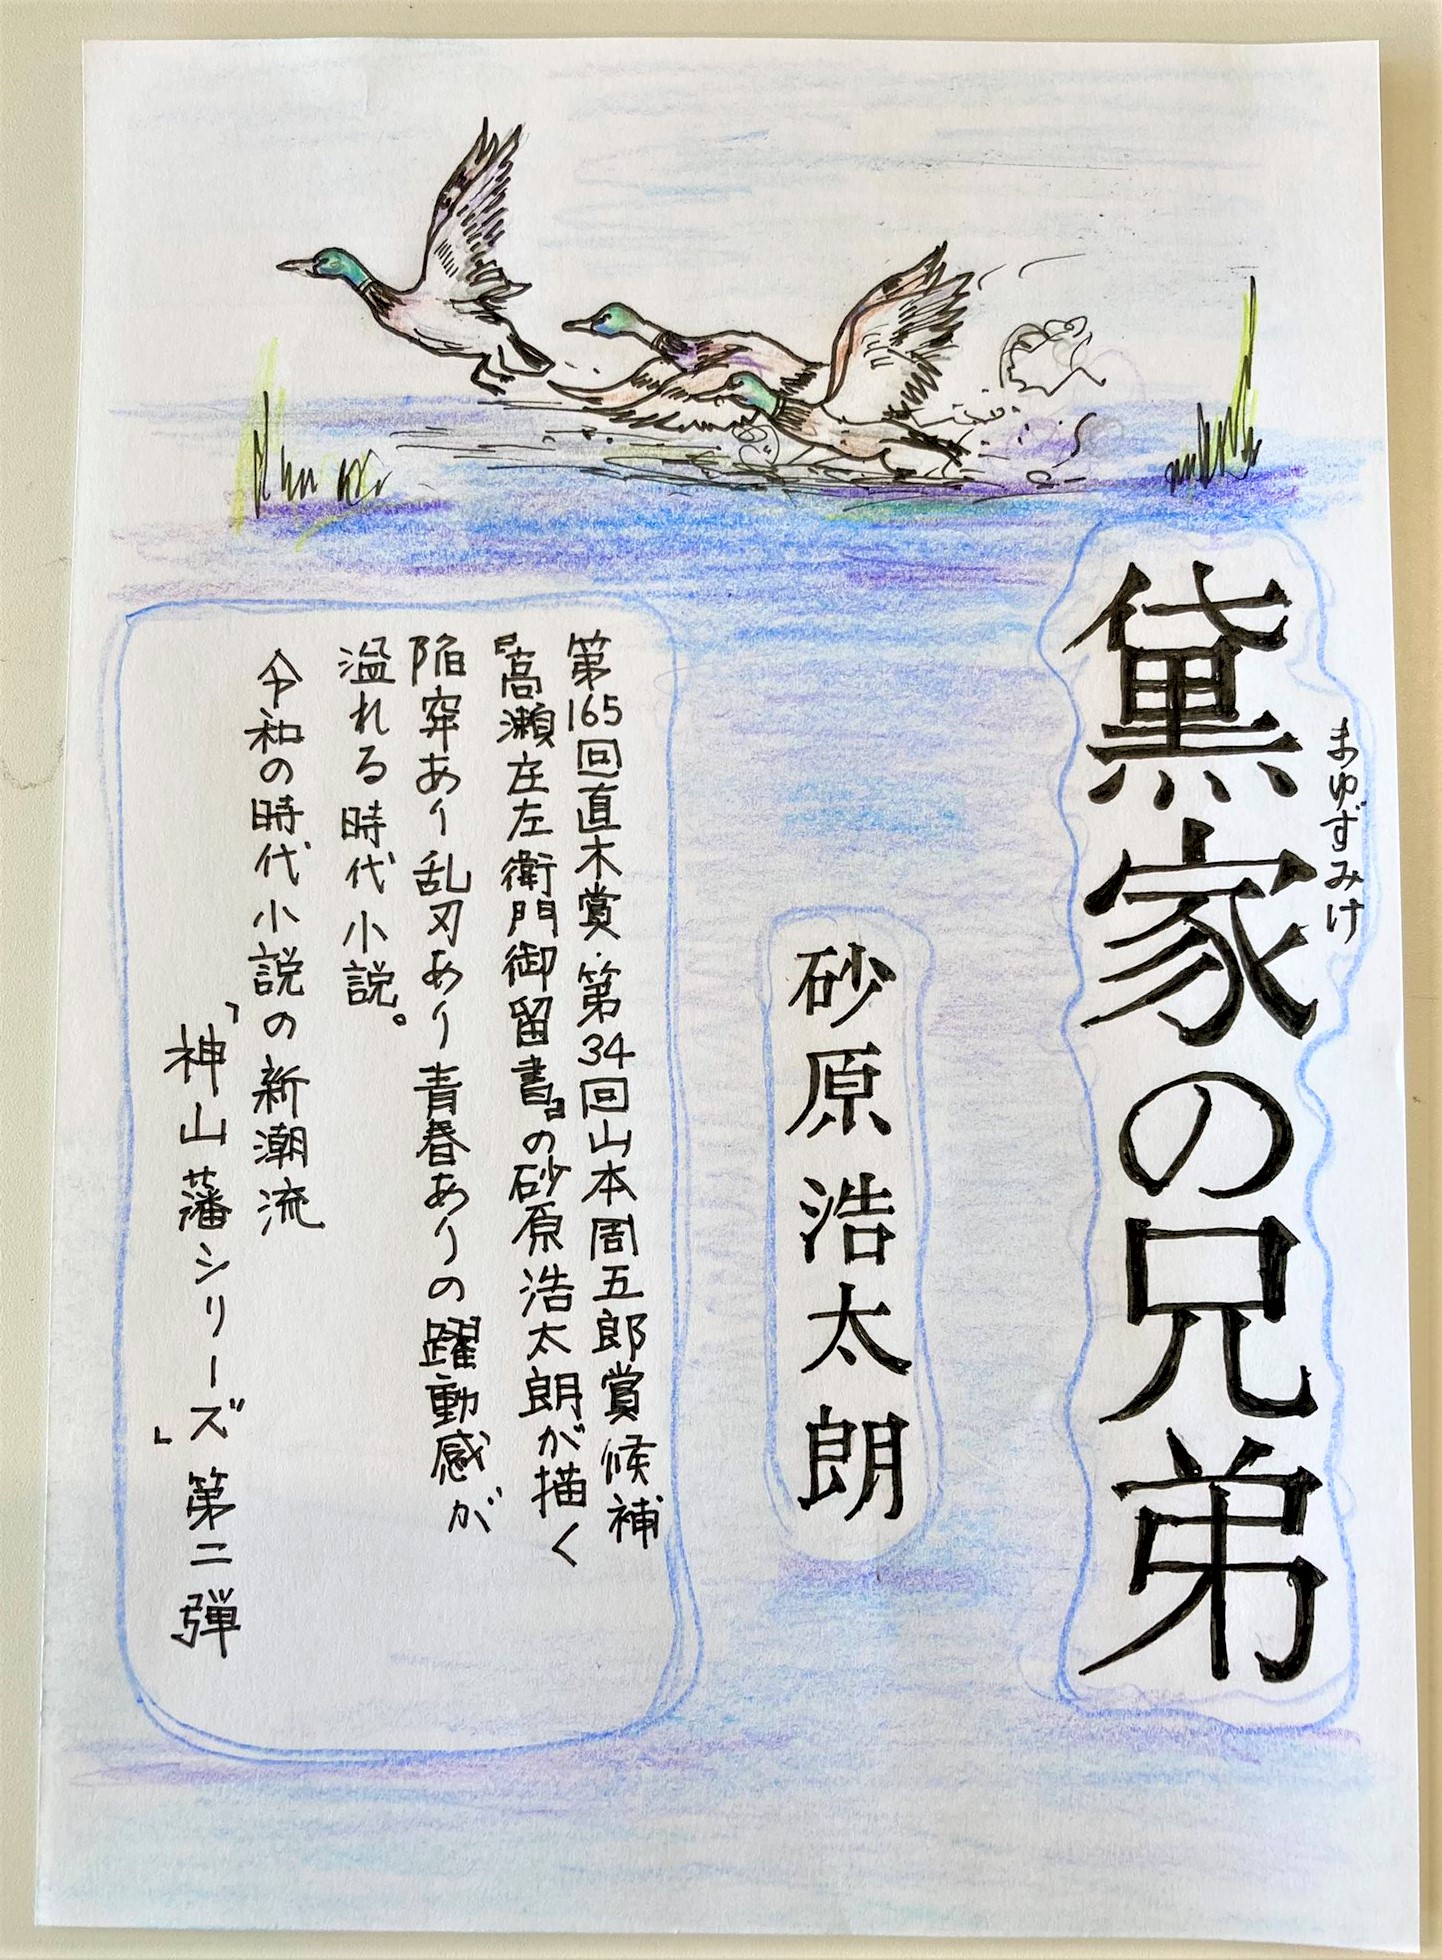 黛家の兄弟
まゆずみけ
砂原浩太朗
第165回直木賞・第34回山本周五郎賞候補
『高瀬庄左衛門御留書』の砂原浩太朗が描く
陥穽あり乱刃あり青春ありの躍動感が
溢れる時代小説。
令和の時代小説の新潮流
「神山藩シリーズ」第二弾